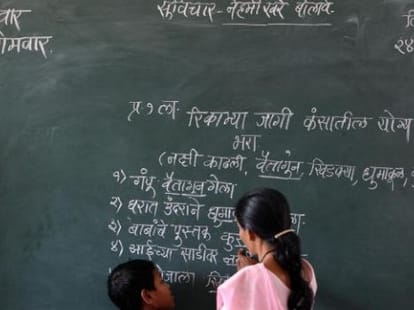 वार
सुविचार - नेहमी खरे बोलावे
सोमवार.
२४
प्र. १ ला. रिकाम्या जागी कंसातील योग्य
भरा.
(नक्षी काढली, वैतागून, खिडक्या, धुमाकूळ,
१) गंपू वैतागून गेला
२) घरात उंदराने धुमाकूळ ला.
३) बाबांचे पुस्तक कु
४) आईच्या साडीवर न